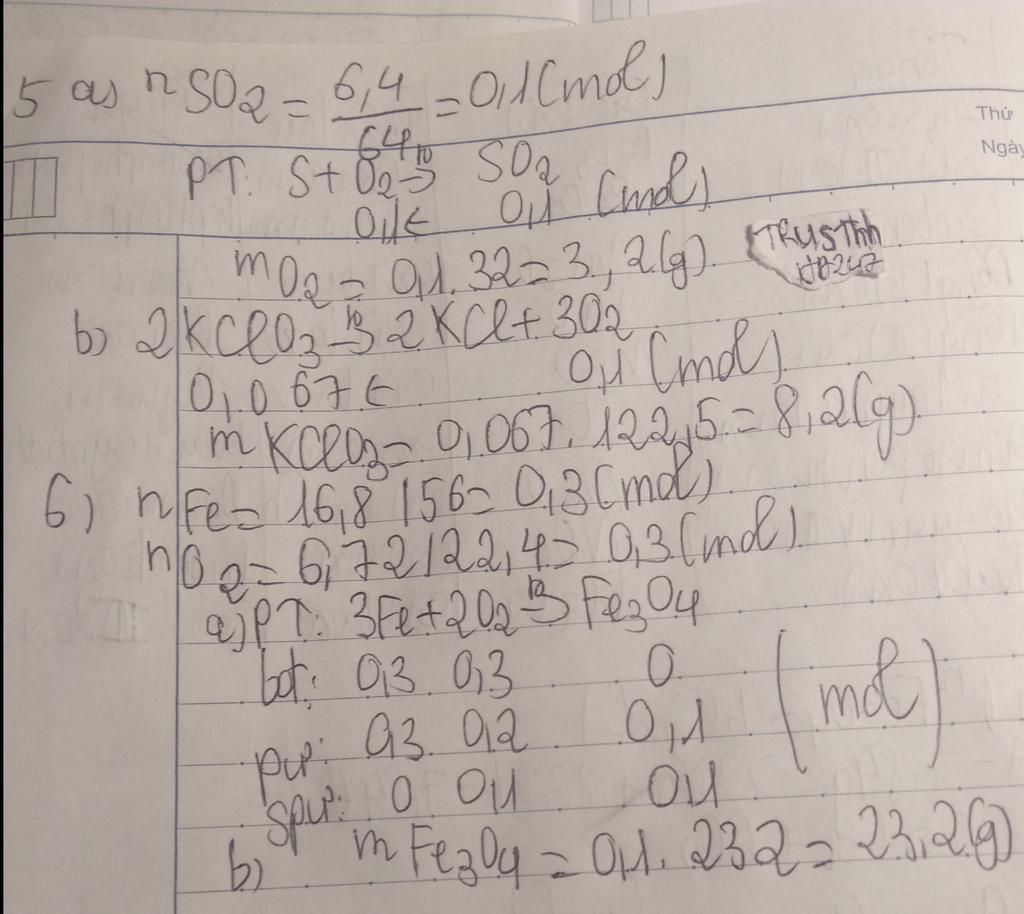 5 a) nSO2 = 6,4/64 = 0,1 (mol)
Thứ
Ngày
PT: S + O2 → SO2
0,1 ← 0,1 (mol)
mO2 = 0,1.32 = 3,2(g)
TRUSThh
b) 2KClO3 → 2KCl + 3O2
0,067 ← 0,1 (mol)
mKClO3 = 0,067.122,5 = 8,2(g)
6) nFe = 16,8/56 = 0,3 (mol)
nO2 = 6,72/22,4 = 0,3 (mol)
a) PT: 3Fe + 2O2 → Fe3O4
bđ: 0,3 0,3 0
pư: 0,3 0,2 0,1 (mol)
spư: 0 0,1 0,1
b) mFe3O4 = 0,1.232 = 23,2(g)